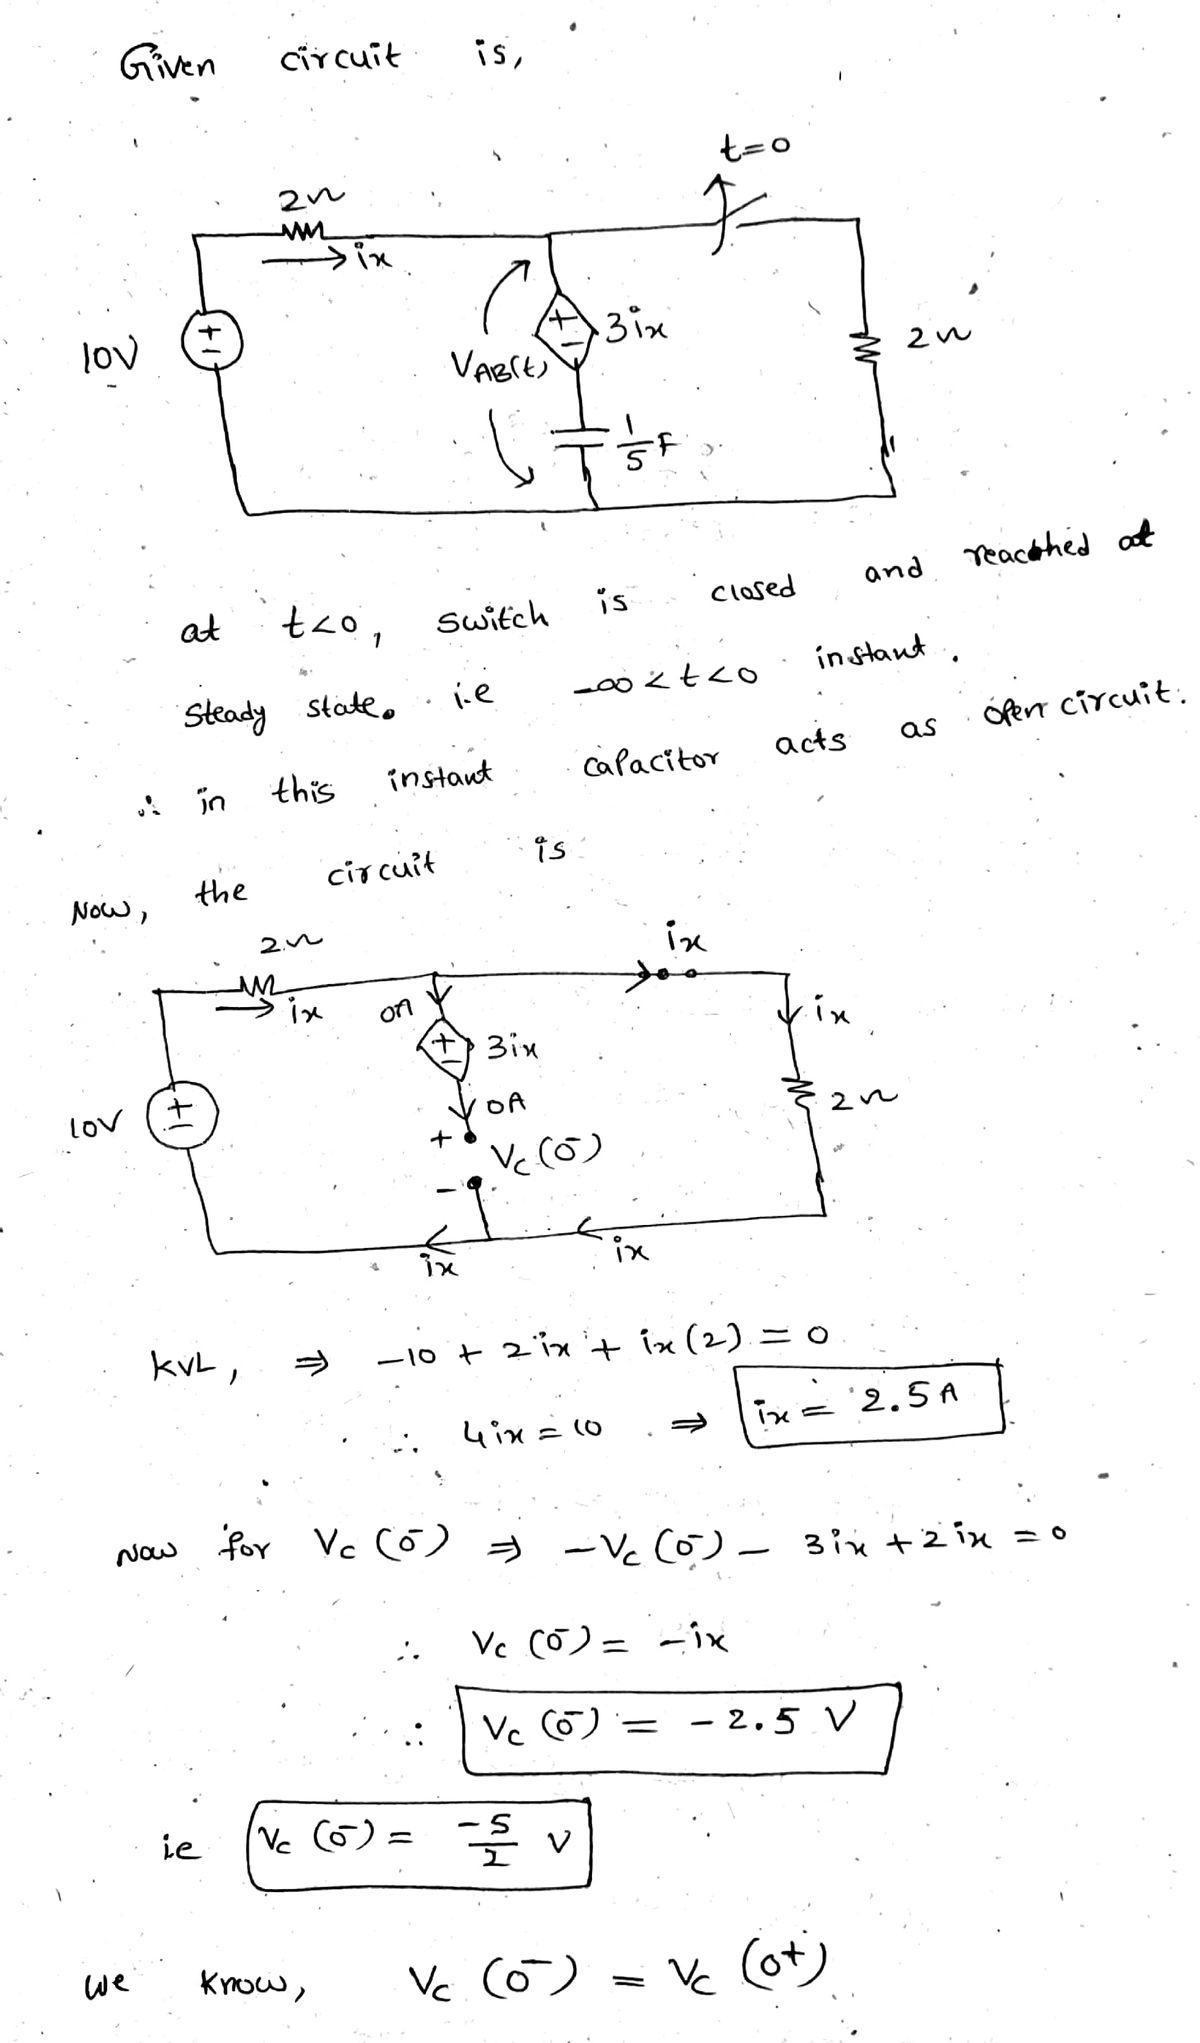 Given circuit is,
t=0
2Ω
ix
10V
+
-
VAB(t)
+
-
3ix
1/5 F
2Ω
at t<0, switch is closed and reached at
steady state. i.e -∞<t<0 instant.
∴ in this instant capacitor acts as open circuit.
Now, the circuit is
2Ω
ix
ix
0A
ix
+
-
3ix
10V
+
-
0A
2Ω
+
Vc(0⁻)
-
ix
ix
KVL, ⇒ -10 + 2ix + ix(2) = 0
∴ 4ix = 10 ⇒ ix = 2.5A
Now for Vc(0⁻) ⇒ -Vc(0⁻) - 3ix + 2ix = 0
∴ Vc(0⁻) = -ix
∴ Vc(0⁻) = -2.5 V
ie Vc(0⁻) = -5/2 V
We know, Vc(0⁻) = Vc(0+)